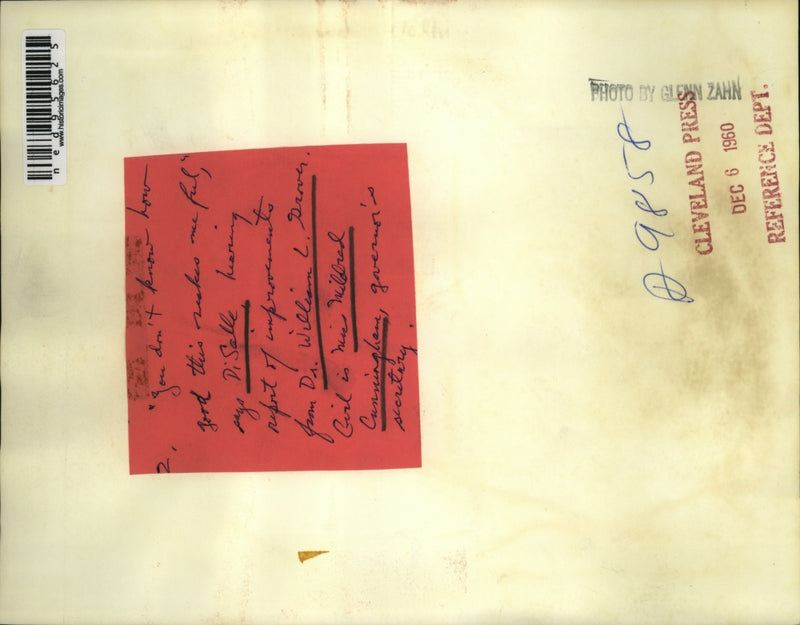 2. "You don't know how
good this makes me feel,"
says DiSalle hearing
report of improvements
from Dr. William L. Grover.
Girl is Miss Mildred
Cunningham, governor's
secretary.
PHOTO BY GLENN ZAHN
9858
CLEVELAND PRESS
DEC 6 1960
REFERENCE DEPT.
ned95625
www.historicimages.com